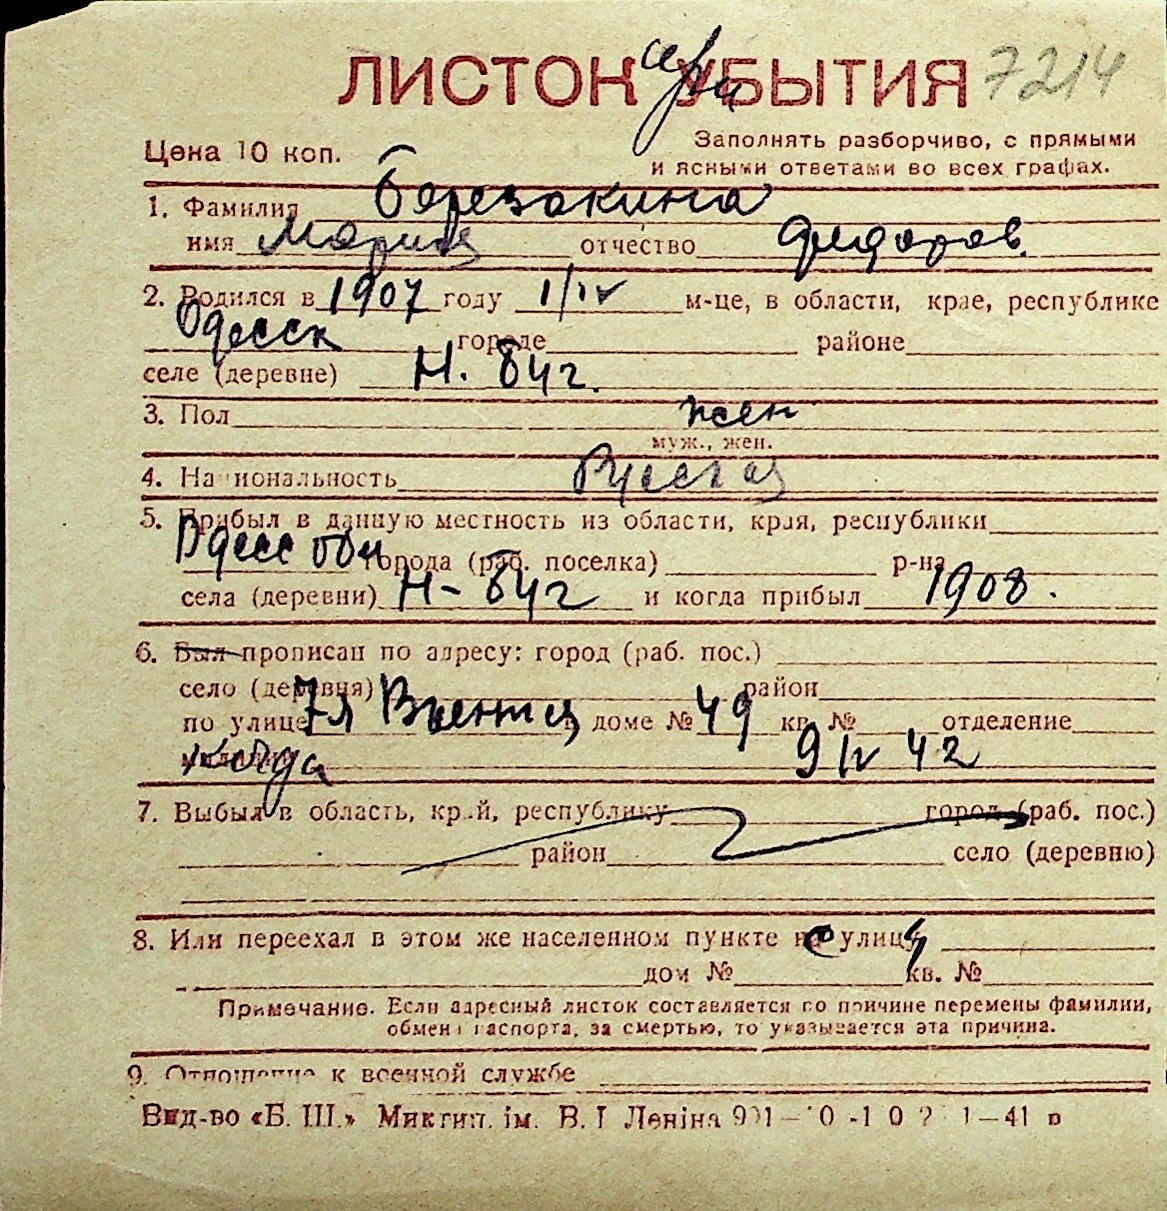 ЛИСТОК УБЫТИЯ 7214
Цена 10 коп.
Заполнять разборчиво, с прямыми
и ясными ответами во всех графах.
1. Фамилия Березакина
имя Мария отчество Федоров.
2. Родился в 1907 году 1/IV м-це, в области, крае, республике
Одесск городе районе
селе (деревне) Н. Буг.
3. Пол жен
муж., жен.
4. Национальность Русская
5. Прибыл в данную местность из области, края, республики
Одесс обл города (раб. поселка) р-на
села (деревни) Н-Буг и когда прибыл 1908.
6. Был прописан по адресу: город (раб. пос.)
село (деревня) район
по улице 7я Военная доме № 49 кв. № отделение
когда 9 IV 42
7. Выбыл в область, край, республику город (раб. пос.)
район село (деревню)
8. Или переехал в этом же населенном пункте с улицы
дом № кв. №
Примечание. Если адресный листок составляется по причине перемены фамилии,
обмена паспорта, за смертью, то указывается эта причина.
9. Отношение к военной службе
Вид-во «Б. Ш.» Миктип. ім. В. І Леніна